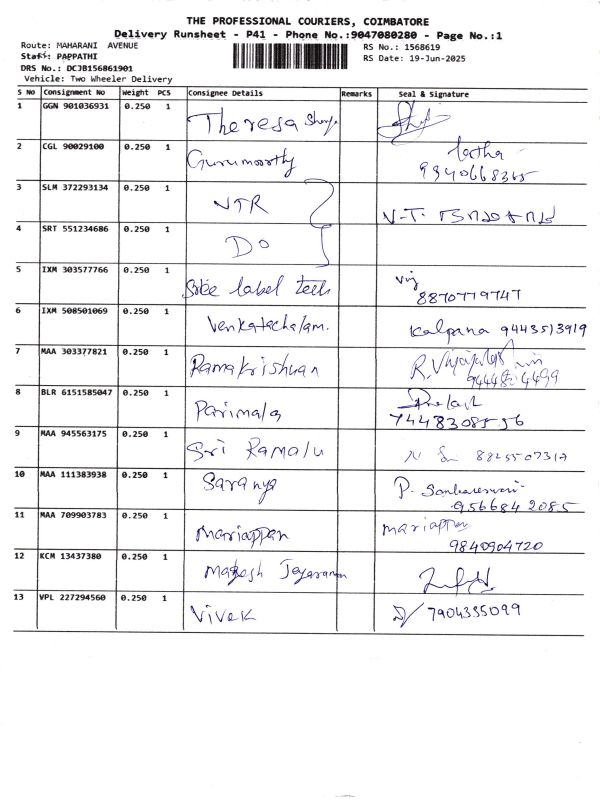 THE PROFESSIONAL COURIERS, COIMBATORE
Delivery Runsheet - P41 - Phone No.:9047080280 - Page No.:1
Route: MAHARANI AVENUE
RS No.: 1568619
Staff: PAPPATHI
RS Date: 19-Jun-2025
DRS No.: DCJB156861901
Vehicle: Two Wheeler Delivery
S No Consignment No Weight PCS Consignee Details Remarks Seal & Signature
1 GGN 901036931 0.250 1 Theresa
2 CGL 90029100 0.250 1 Gurumoorthy
9340668365
3 SLM 372293134 0.250 1 VTR V.T.
4 SRT 551234686 0.250 1 DO
5 IXM 303577766 0.250 1 Sree label tech
8870779747
6 IXM 508501069 0.250 1 Venkatachalam. Kalpana 9443513919
7 MAA 303377821 0.250 1 Ramakrishnan
9444804499
8 BLR 6151585047 0.250 1 Parimala
9 MAA 945563175 0.250 1 Sri Ramalu
10 MAA 111383938 0.250 1 Saranya P. Sankareswari
9566842085
11 MAA 709903783 0.250 1 Mariappan mariappan
9840904720
12 KCM 13437380 0.250 1 Magesh Jayaraman
13 VPL 227294560 0.250 1 Vivek 7904335099